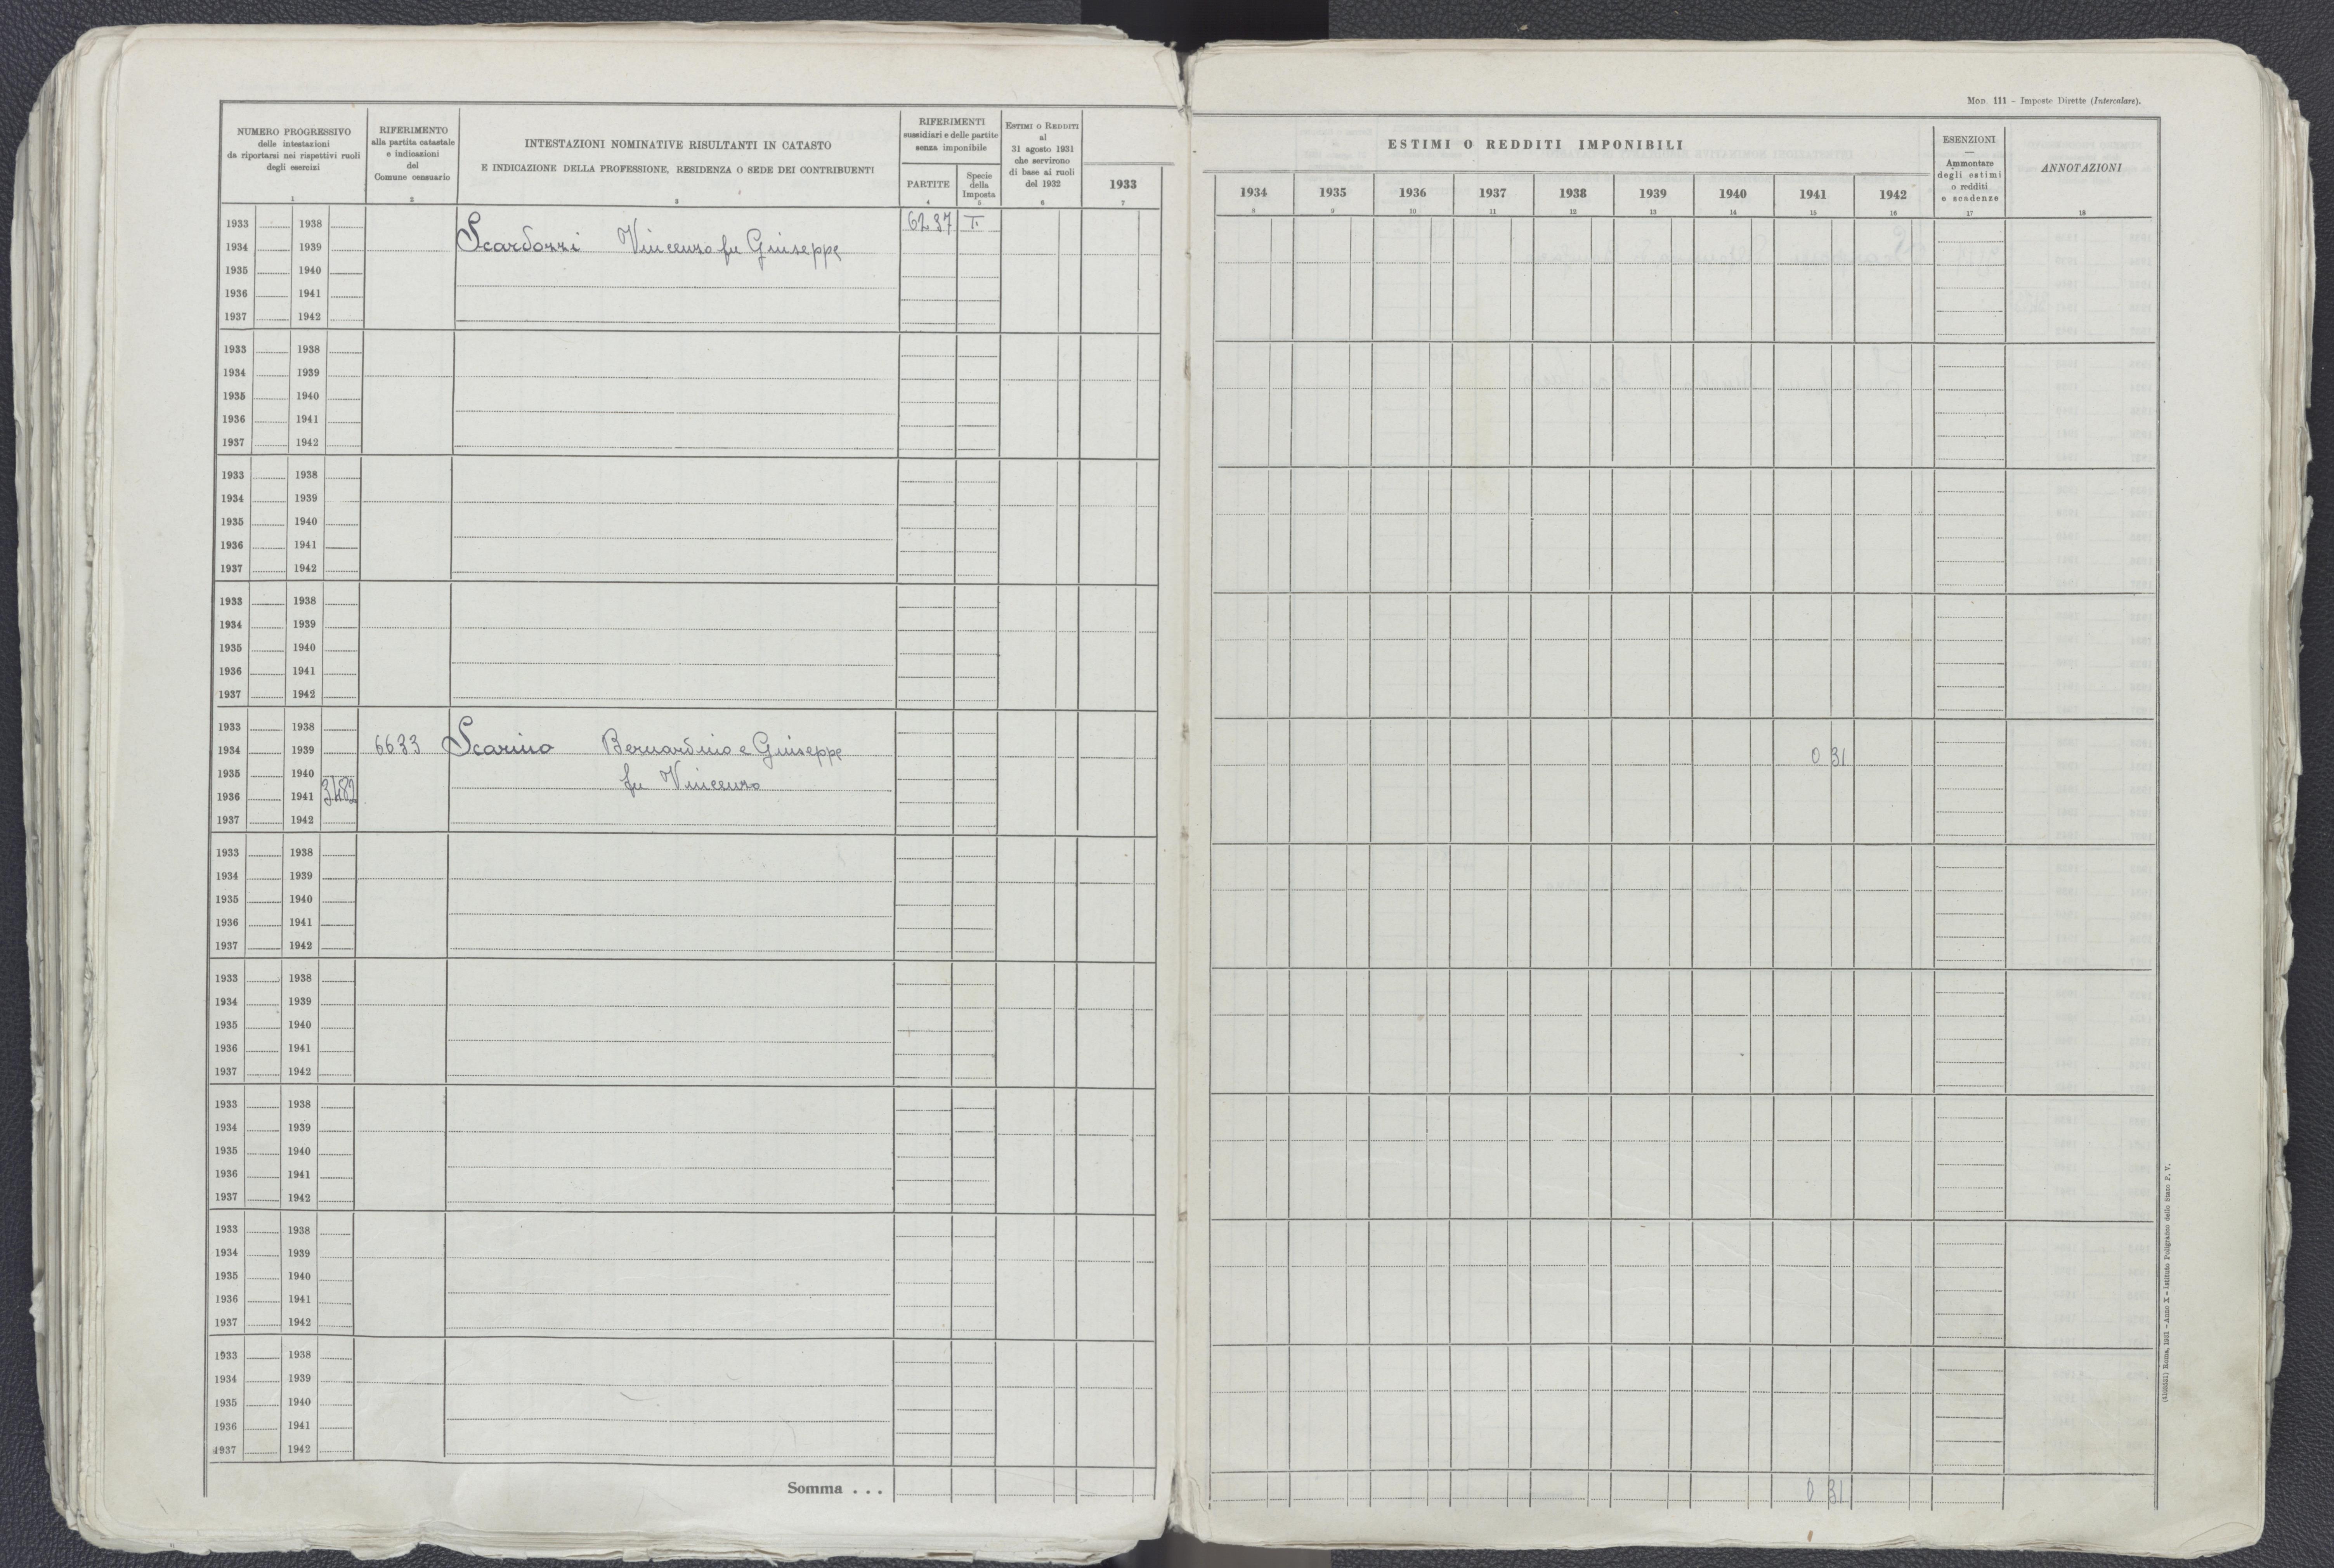 Mod. 111 – Imposte Dirette (Intercalare).
NUMERO PROGRESSIVO
delle intestazioni
da riportarsi nei rispettivi ruoli
degli esercizi
1
RIFERIMENTO
alla partita catastale
e indicazioni
del
Comune censuario
2
INTESTAZIONI NOMINATIVE RISULTANTI IN CATASTO
E INDICAZIONE DELLA PROFESSIONE, RESIDENZA O SEDE DEI CONTRIBUENTI
3
RIFERIMENTI
sussidiari e delle partite
senza imponibile
PARTITE
4
Specie
della
Imposta
5
Estimi o Redditi
al
31 agosto 1931
che servirono
di base ai ruoli
del 1932
6
1933
7
ESTIMI O REDDITI IMPONIBILI
1934 1935 1936 1937 1938 1939 1940 1941 1942
8 9 10 11 12 13 14 15 16
ESENZIONI
—
Ammontare
degli estimi
o redditi
e scadenze
17
ANNOTAZIONI
18
1933 1938 6237 T
1934 1939 Scardozzi Vincenzo fu Giuseppe
1935 1940
1936 1941
1937 1942
1933 1938
1934 1939
1935 1940
1936 1941
1937 1942
1933 1938
1934 1939
1935 1940
1936 1941
1937 1942
1933 1938
1934 1939
1935 1940
1936 1941
1937 1942
1933 1938
1934 1939 6633 Scarino Bernardino e Giuseppe 0 31
1935 1940 fu Vincenzo
1936 1941 3482
1937 1942
1933 1938
1934 1939
1935 1940
1936 1941
1937 1942
1933 1938
1934 1939
1935 1940
1936 1941
1937 1942
1933 1938
1934 1939
1935 1940
1936 1941
1937 1942
1933 1938
1934 1939
1935 1940
1936 1941
1937 1942
1933 1938
1934 1939
1935 1940
1936 1941
1937 1942
Somma . . . 0 31
Roma, 1931 – Anno X – Istituto Poligrafico dello Stato P. V.